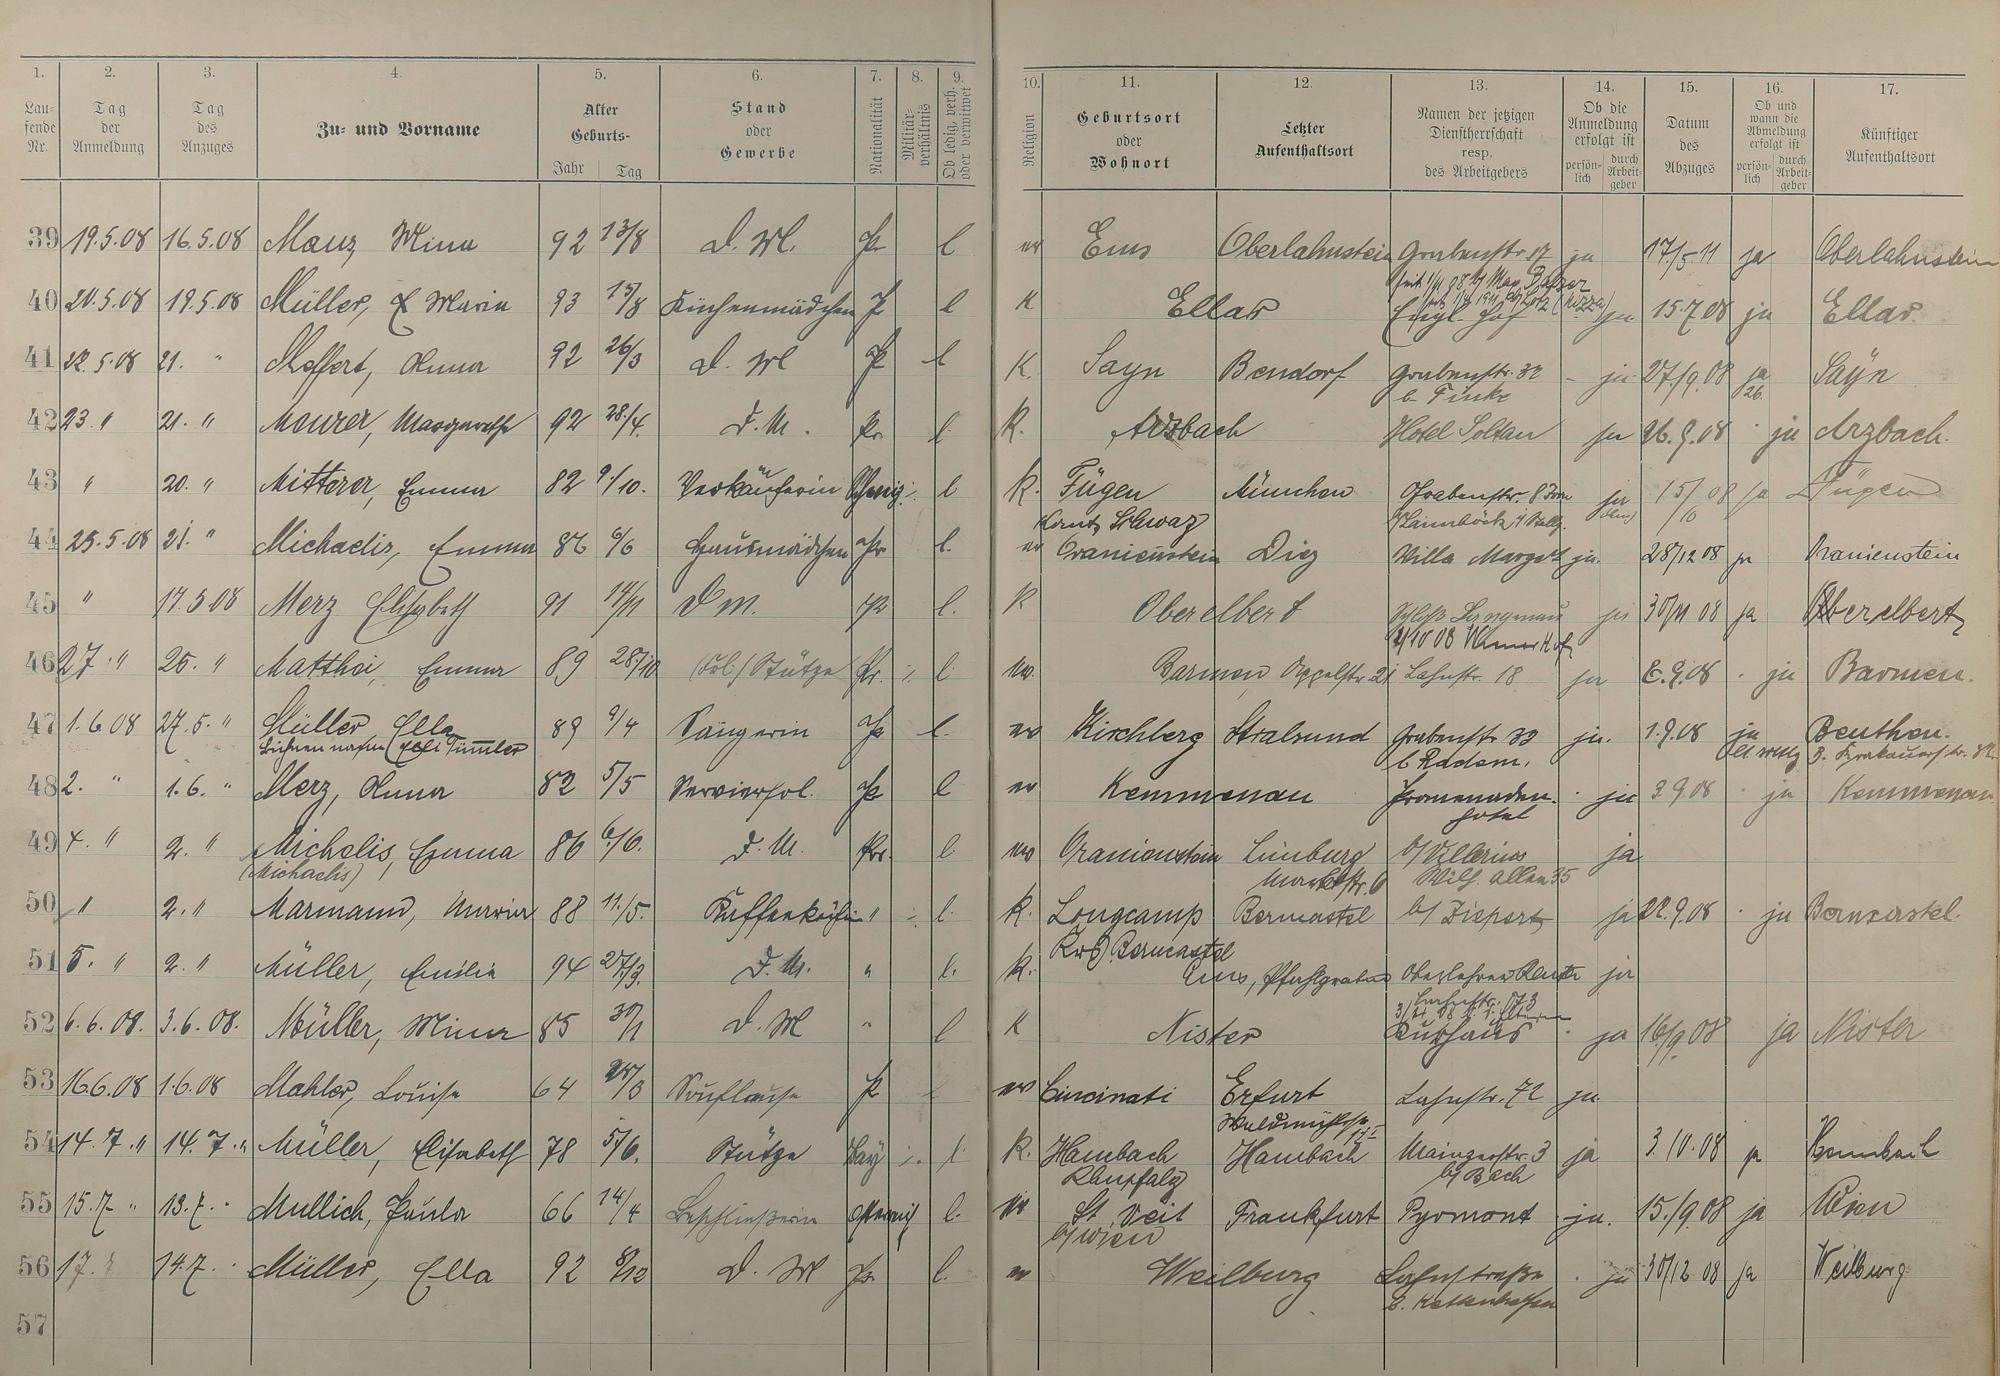 1. 2. 3. 4. 5. 6. 7. 8. 9. 10. 11. 12. 13. 14. 15. 16. 17.
Lau-fende Nr. Tag der Anmeldung Tag des Anzuges Zu- und Vorname Alter Geburts- Jahr Tag Stand oder Gewerbe Nationalität Militär-verhältnis Ob ledig, verh. oder verwitwet Religion Geburtsort oder Wohnort Letzter Aufenthaltsort Namen der jetzigen Dienstherrschaft resp. des Arbeitgebers Ob die Anmeldung erfolgt ist persön-lich durch Arbeit-geber Datum des Abzuges Ob und wann die Abmeldung erfolgt ist persön-lich durch Arbeit-geber Künftiger Aufenthaltsort
39 19.5.08 16.5.08 Manz Mina 92 13/8 D. M. Pr l ev Ems Oberlahnstein Grabenstr 17 ja 17/5 11 ja Oberlahnstein
40 20.5.08 19.5.08 Müller, Maria 93 15/8 Küchenmädchen P l K Ellar Engl. Hof ja 15.7.08 ja Ellar
41 22.5.08 21. " Meffert, Anna 92 26/3 D. M Pr l K. Sayn Bendorf Grabenstr. 32 - ja 27/9.08 ja Sayn
b. Finke 26.
42 23. " 21. " Maurer, Margarethe 92 28./4. D. M. Pr l K. Arzbach Hotel Soltau ja 26.9.08 ja Arzbach.
43 " 20. " Mitterer, Emma 82 9./10. Verkäuferin l K. Fügen München Grabenstr. 8 ja 15/10 08 ja Fügen
Schwaz
44 25.5.08 21. " Michaelis, Emma 86 6/6 Hausmädchen Pr l. ev Oranienstein Diez Villa Margot ja. 28/12 08 ja Oranienstein
45 " 17.5.08 Merz Elisabeth 91 14/11 D M. Pr l. K Oberelbert Schloß Langenau ja 30/11 08 ja Oberelbert
46 27. " 26. " Matthei, Emma 89 28./10 Stütze Pr. ./. l. ev. Barmen, Oppelstr 21 Lahnstr. 18 ja 6.9.08 ja Barmen.
47 1.6.08 27.5. " Müller Ella 89 9/4 Sängerin Pr l. ev Kirchberg Stralsund Grabenstr 33 ja. 1.9.08 ja Beuthen.
Bühnenname (Elli Tümler b Radem.
48 2. " 1.6. " Merz, Anna 82 5/5 Servierfrl. Pr l ev Kemmenau Promenaden. ja 3.9.08 ja Kemmenau
hotel
49 4. " 2. " Michelis, Emma 86 6./6. D. M. Pr. l ev Oranienstein Limburg b/ ja
(Michaelis) Wilh. allee 35
50 " 2. " Marmann, Maria 88 11./5. Kaffeeköchin " ./. l. K. Longcamp Bernastel b/ Diepert ja 22.9.08 ja Berncastel.
Krs Berncastel
51 5. " 2. " Müller, Emilie 94 27./3. D. M. " l. K. Ems, Pfahlgraben Oberlehrer ja
52 6.6.08. 3.6.08. Müller, Mina 85 30/1 D. M " l K Nister Kurhaus ja 16/9 08 ja Nister
53 16.6.08 1.6.08 Mahler, Louise 64 /3 Soufleuse Pr ev Cincinati Erfurt Lahnstr. 72 ja
54 14.7. " 14.7. " Müller, Elisabeth 78 5/6. Stütze Bay ./. l. K. Hambach Hambach Mainzerstr. 3 ja 3.10.08 ja Hambach
Rheinpfalz b/ Bach
55 15.7. " 13.7. " Mullich, Paula 66 14/4 Beschließerin Österreich l. St. Veit Frankfurt Pyrmont ja. 15./9.08 ja Wien
b/ Wien
56 17. 14.7. Müller, Ella 92 8/12 D. M Pr. l. ev Weilburg Lahnstraße ja 30/12 08 ja Weilburg
57